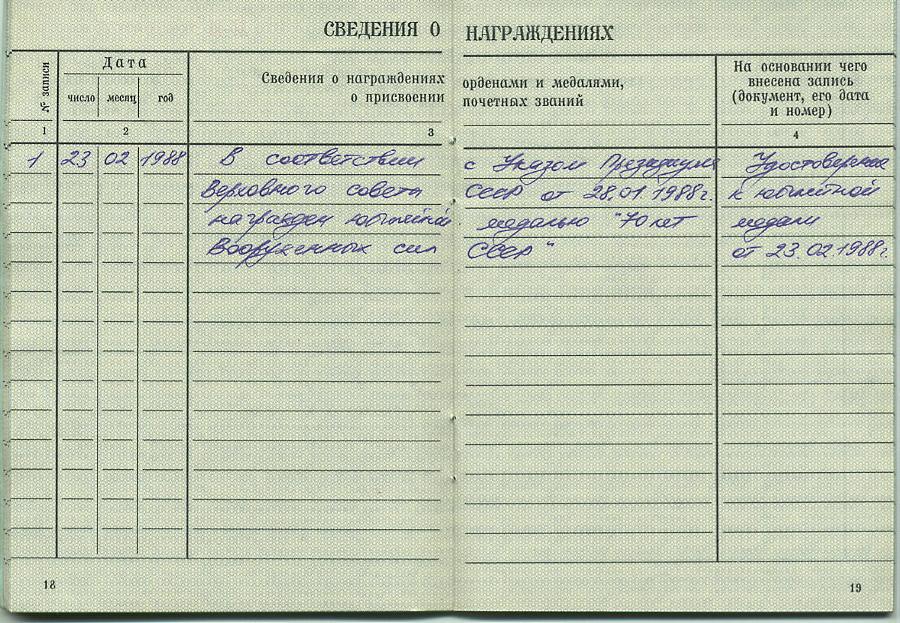 СВЕДЕНИЯ О НАГРАЖДЕНИЯХ
№ записи
Дата
число месяц год
Сведения о награждениях орденами и медалями,
о присвоении почетных званий
На основании чего
внесена запись
(документ, его дата
и номер)
1 2 3 4
1 23 02 1988 В соответствии с Указом Президиума Удостоверение
Верховного совета СССР от 28.01.1988г. к юбилейной
награжден юбилейной медалью "70 лет медали
Вооруженных сил СССР" от 23.02.1988г.
18 19